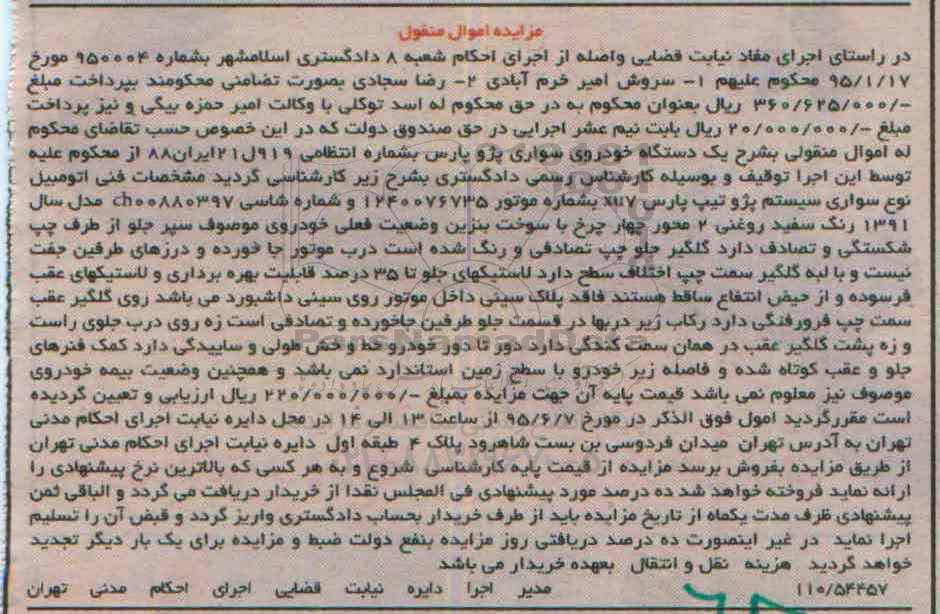 مزایده اموال منقول
در راستای اجرای مفاد نیابت قضایی واصله از اجرای احکام شعبه ۸ دادگستری اسلامشهر بشماره ۹۵۰۰۰۴ مورخ
۹۵/۱/۱۷ محکوم علیهم ۱- سروش امیر خرم آبادی ۲- رضا سجادی بصورت تضامنی محکومند بپرداخت مبلغ
-/۳۶۰/۶۲۵/۰۰۰ ریال بعنوان محکوم به در حق محکوم له اسد توکلی با وکالت امیر حمزه بیگی و نیز پرداخت
مبلغ -/۲۰/۰۰۰/۰۰۰ ریال بابت نیم عشر اجرایی در حق صندوق دولت که در این خصوص حسب تقاضای محکوم
له اموال منقولی بشرح یک دستگاه خودروی سواری پژو پارس بشماره انتظامی ۹۱۹ل۲۱ایران۸۸ از محکوم علیه
توسط این اجرا توقیف و بوسیله کارشناس رسمی دادگستری بشرح زیر کارشناسی گردید مشخصات فنی اتومبیل
نوع سواری سیستم پژو تیپ پارس xu۷ بشماره موتور ۱۲۴۰۰۷۶۷۳۵ و شماره شاسی ch۰۰۸۸۰۳۹۷ مدل سال
۱۳۹۱ رنگ سفید روغنی ۲ محور چهار چرخ با سوخت بنزین وضعیت فعلی خودروی موصوف سپر جلو از طرف چپ
شکستگی و تصادف دارد گلگیر جلو چپ تصادفی و رنگ شده است درب موتور جا خورده و درزهای طرفین جفت
نیست و با لبه گلگیر سمت چپ اختلاف سطح دارد لاستیکهای جلو تا ۳۵ درصد قابلیت بهره برداری و لاستیکهای عقب
فرسوده و از حیض انتفاع ساقط هستند فاقد پلاک سینی داخل موتور روی سینی داشبورد می باشد روی گلگیر عقب
سمت چپ فرورفتگی دارد رکاب زیر دربها در قسمت جلو طرفین جاخورده و تصادفی است زه روی درب جلوی راست
و زه پشت گلگیر عقب در همان سمت کندگی دارد دور تا دور خودرو خط و خش طولی و ساییدگی دارد کمک فنرهای
جلو و عقب کوتاه شده و فاصله زیر خودرو با سطح زمین استاندارد نمی باشد و همچنین وضعیت بیمه خودروی
موصوف نیز معلوم نمی باشد قیمت پایه آن جهت مزایده بمبلغ -/۲۲۰/۰۰۰/۰۰۰ ریال ارزیابی و تعیین گردیده
است مقررگردید امول فوق الذکر در مورخ ۹۵/۶/۷ از ساعت ۱۳ الی ۱۴ در محل دایره نیابت اجرای احکام مدنی
تهران به آدرس تهران میدان فردوسی بن بست شاهرود پلاک ۴ طبقه اول دایره نیابت اجرای احکام مدنی تهران
از طریق مزایده بفروش برسد مزایده از قیمت پایه کارشناسی شروع و به هر کسی که بالاترین نرخ پیشنهادی را
ارائه نماید فروخته خواهد شد ده درصد مورد پیشنهادی فی المجلس نقدا از خریدار دریافت می گردد و الباقی ثمن
پیشنهادی ظرف مدت یکماه از تاریخ مزایده باید از طرف خریدار بحساب دادگستری واریز گردد و قبض آن را تسلیم
اجرا نماید در غیر اینصورت ده درصد دریافتی روز مزایده بنفع دولت ضبط و مزایده برای یک بار دیگر تجدید
خواهد گردید هزینه نقل و انتقال بعهده خریدار می باشد
۱۱۰/۵۴۴۵۷ مدیر اجرا دایره نیابت قضایی اجرای احکام مدنی تهران